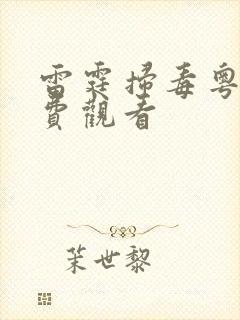 雷霆掃毒粵
費觀看
茉世黎